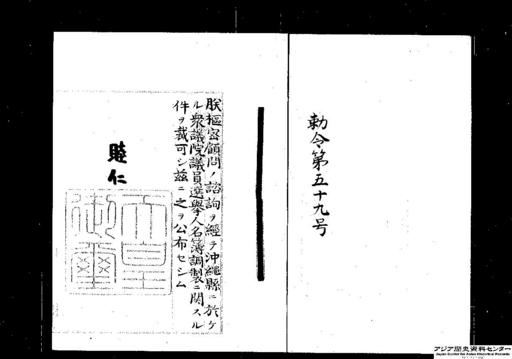 勅令第五十九号
朕枢密顧問ノ諮詢ヲ経テ沖縄縣ニ於ケ
ル衆議院議員選挙人名簿調製ニ関スル
件ヲ裁可シ茲ニ之ヲ公布セシム
睦仁
天皇御璽
アジア歴史資料センター
Japan Center for Asian Historical Records